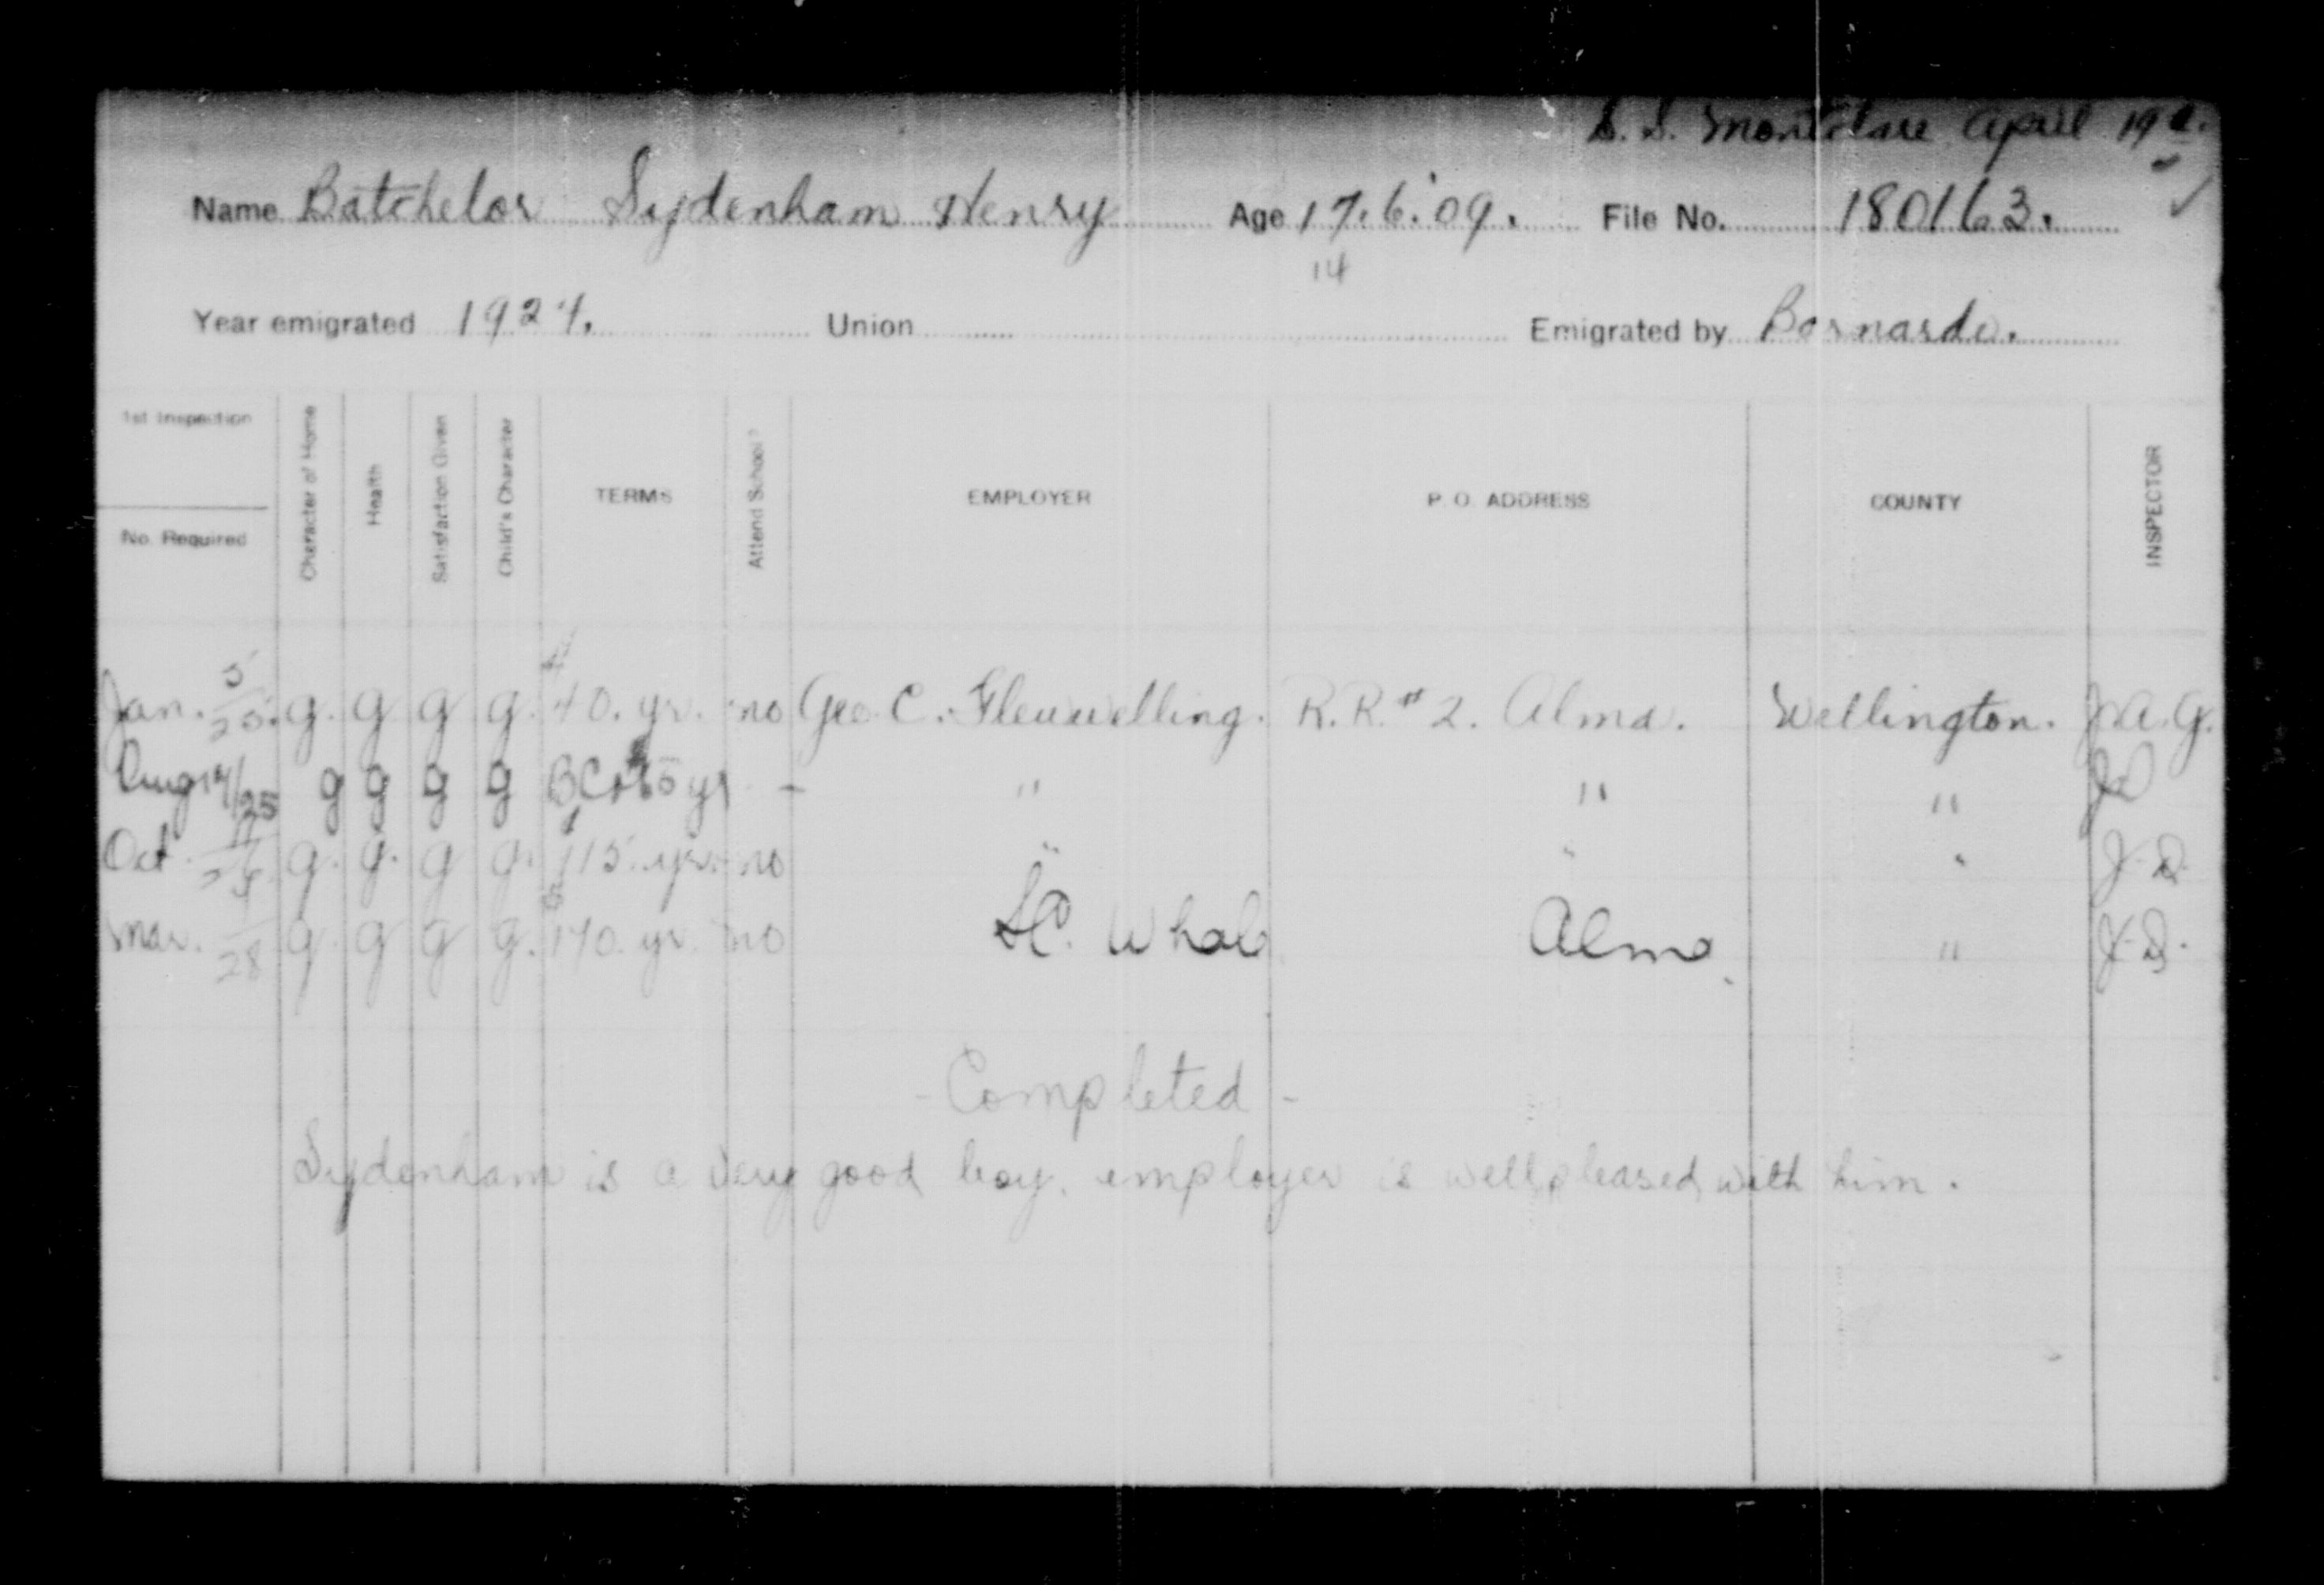 S. S. Montclare April 19
Name Batchelor Sydenham Henry Age 17.6.09. File No. 180163.
14
Year emigrated 1924. Union Emigrated by Barnardo.
1st Inspection
No. Required
Character of Home
Health
Satisfaction Given
Child's Character
TERMS
Attend School?
EMPLOYER
P. O. ADDRESS
COUNTY
INSPECTOR
Jan. 5/25. g. g g g. 40. yr. no Geo. C. Fleuwelling. R. R. # 2. Alma. Wellington. J.A.G.
Aug 14/25 g g g g yr - " " "
Oct. g. g. g g. 115. yr. no " " " J.D.
Mar. 28 g. g g g. 140. yr. no Alma. " J.D.
- Completed -
Sydenham is a very good boy. employer is well pleased with him.